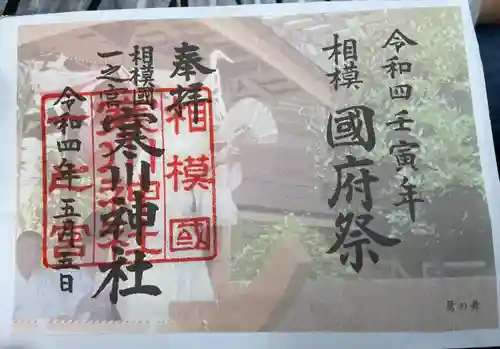 令和四壬寅年
相模
國府祭
奉拝
相模國
一之宮
寒川神社
令和四年五月五日
相模國
鷺の舞